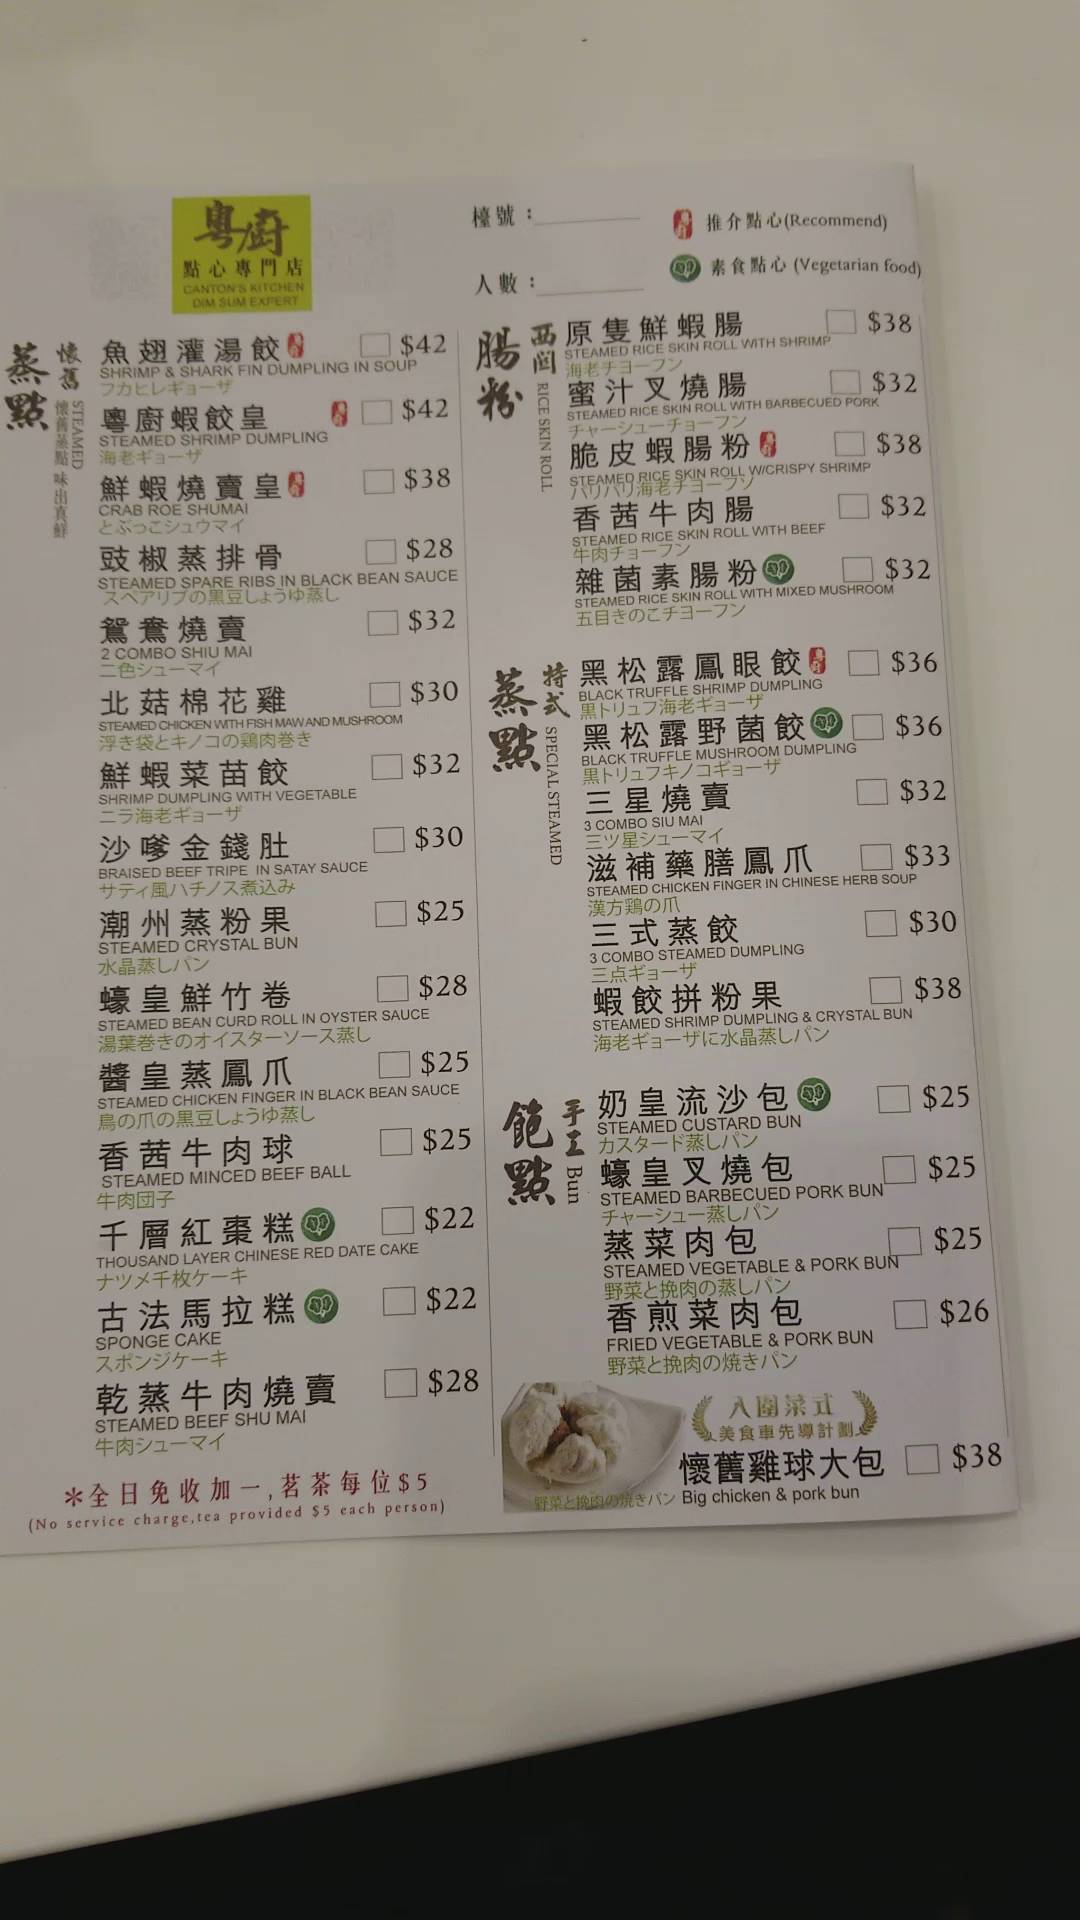 粵廚
點心專門店
CANTON'S KITCHEN
DIM SUM EXPERT
檯號：
人數：
推介點心(Recommend)
素食點心 (Vegetarian food)
懷舊
蒸點
STEAMED
懷舊蒸點 味出真鮮
魚翅灌湯餃 $42
SHRIMP & SHARK FIN DUMPLING IN SOUP
フカヒレギョーザ
粵廚蝦餃皇 $42
STEAMED SHRIMP DUMPLING
海老ギョーザ
鮮蝦燒賣皇 $38
CRAB ROE SHUMAI
とぶっこシュウマイ
豉椒蒸排骨 $28
STEAMED SPARE RIBS IN BLACK BEAN SAUCE
スペアリブの黒豆しょうゆ蒸し
鴛鴦燒賣 $32
2 COMBO SHIU MAI
二色シューマイ
北菇棉花雞 $30
STEAMED CHICKEN WITH FISH MAW AND MUSHROOM
浮き袋とキノコの鶏肉巻き
鮮蝦菜苗餃 $32
SHRIMP DUMPLING WITH VEGETABLE
ニラ海老ギョーザ
沙嗲金錢肚 $30
BRAISED BEEF TRIPE IN SATAY SAUCE
サティ風ハチノス煮込み
潮州蒸粉果 $25
STEAMED CRYSTAL BUN
水晶蒸しパン
蠔皇鮮竹卷 $28
STEAMED BEAN CURD ROLL IN OYSTER SAUCE
湯葉巻きのオイスターソース蒸し
醬皇蒸鳳爪 $25
STEAMED CHICKEN FINGER IN BLACK BEAN SAUCE
鳥の爪の黒豆しょうゆ蒸し
香茜牛肉球 $25
STEAMED MINCED BEEF BALL
牛肉団子
千層紅棗糕 $22
THOUSAND LAYER CHINESE RED DATE CAKE
ナツメ千枚ケーキ
古法馬拉糕 $22
SPONGE CAKE
スポンジケーキ
乾蒸牛肉燒賣 $28
STEAMED BEEF SHU MAI
牛肉シューマイ
＊全日免收加一,茗茶每位$5
(No service charge,tea provided $5 each person)
西関
腸粉
RICE SKIN ROLL
原隻鮮蝦腸 $38
STEAMED RICE SKIN ROLL WITH SHRIMP
海老チョーフン
蜜汁叉燒腸 $32
STEAMED RICE SKIN ROLL WITH BARBECUED PORK
チャーシューチョーフン
脆皮蝦腸粉 $38
STEAMED RICE SKIN ROLL W/CRISPY SHRIMP
パリパリ海老チョーフン
香茜牛肉腸 $32
STEAMED RICE SKIN ROLL WITH BEEF
牛肉チョーフン
雜菌素腸粉 $32
STEAMED RICE SKIN ROLL WITH MIXED MUSHROOM
五目きのこチヨーフン
特式
蒸點
SPECIAL STEAMED
黑松露鳳眼餃 $36
BLACK TRUFFLE SHRIMP DUMPLING
黒トリュフ海老ギョーザ
黑松露野菌餃 $36
BLACK TRUFFLE MUSHROOM DUMPLING
黒トリュフキノコギョーザ
三星燒賣 $32
3 COMBO SIU MAI
三ツ星シューマイ
滋補藥膳鳳爪 $33
STEAMED CHICKEN FINGER IN CHINESE HERB SOUP
漢方鶏の爪
三式蒸餃 $30
3 COMBO STEAMED DUMPLING
三点ギョーザ
蝦餃拼粉果 $38
STEAMED SHRIMP DUMPLING & CRYSTAL BUN
海老ギョーザに水晶蒸しパン
手工
飽點
Bun
奶皇流沙包 $25
STEAMED CUSTARD BUN
カスタード蒸しパン
蠔皇叉燒包 $25
STEAMED BARBECUED PORK BUN
チャーシュー蒸しパン
蒸菜肉包 $25
STEAMED VEGETABLE & PORK BUN
野菜と挽肉の蒸しパン
香煎菜肉包 $26
FRIED VEGETABLE & PORK BUN
野菜と挽肉の焼きパン
入圍菜式
美食車先導計劃
懷舊雞球大包 $38
野菜と挽肉の焼きパン Big chicken & pork bun